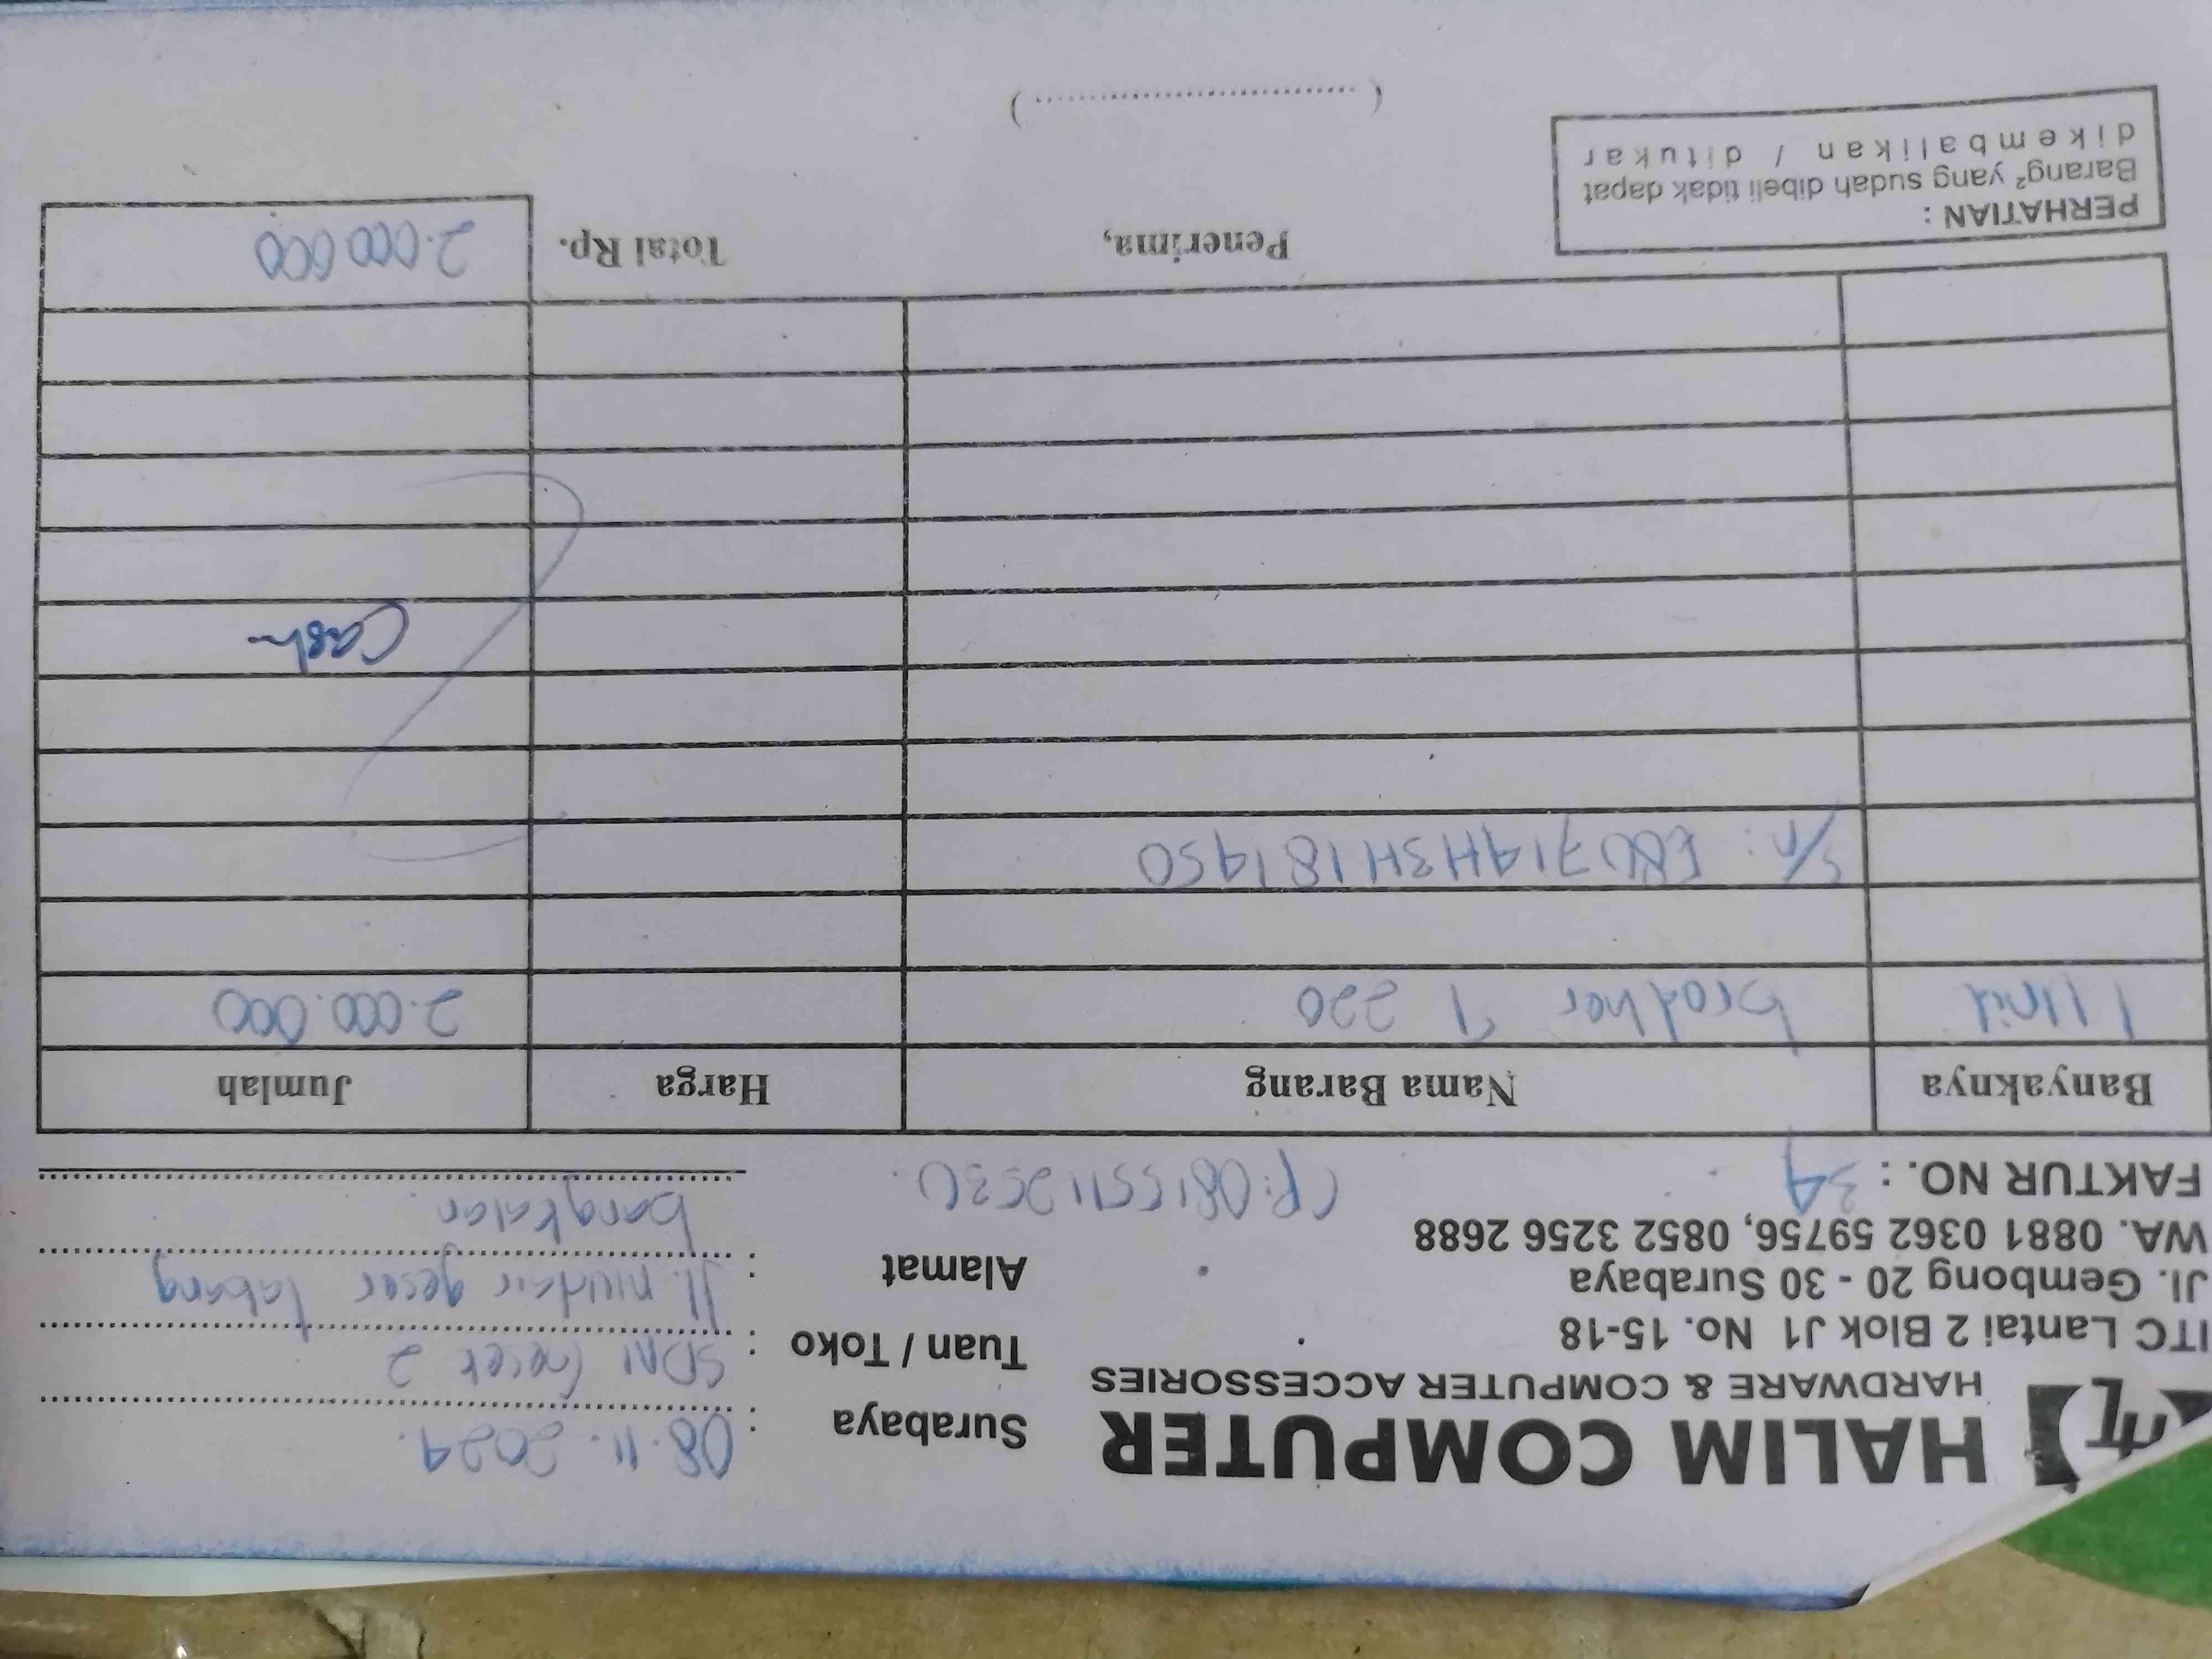 HALIM COMPUTER
HARDWARE & COMPUTER ACCESSORIES
ITC Lantai 2 Blok J1 No. 15-18
Jl. Gembong 20 - 30 Surabaya
WA. 0881 0362 59756, 0852 3256 2688
FAKTUR NO. : 34
Surabaya : 08.11.2024.
Tuan / Toko : SDN Geser 2
Alamat : Jl. geser
bangkalan.
Banyaknya Nama Barang Harga Jumlah
1 Unit brother T 220 2.000.000
S/n: E80714H3H181450
Cash
PERHATIAN :
Barang² yang sudah dibeli tidak dapat
dikembalikan / ditukar
Penerima,
(.................................)
Total Rp. 2.000.000